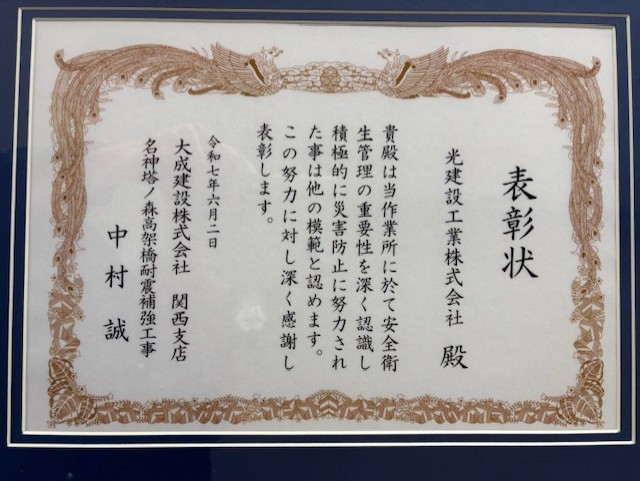 表彰状
光建設工業株式会社 殿
貴殿は当作業所に於て安全衛
生管理の重要性を深く認識し
積極的に災害防止に努力され
た事は他の模範と認めます。
この努力に対し深く感謝し
表彰します。
令和七年六月二日
大成建設株式会社 関西支店
名神塔ノ森高架橋耐震補強工事
中村 誠